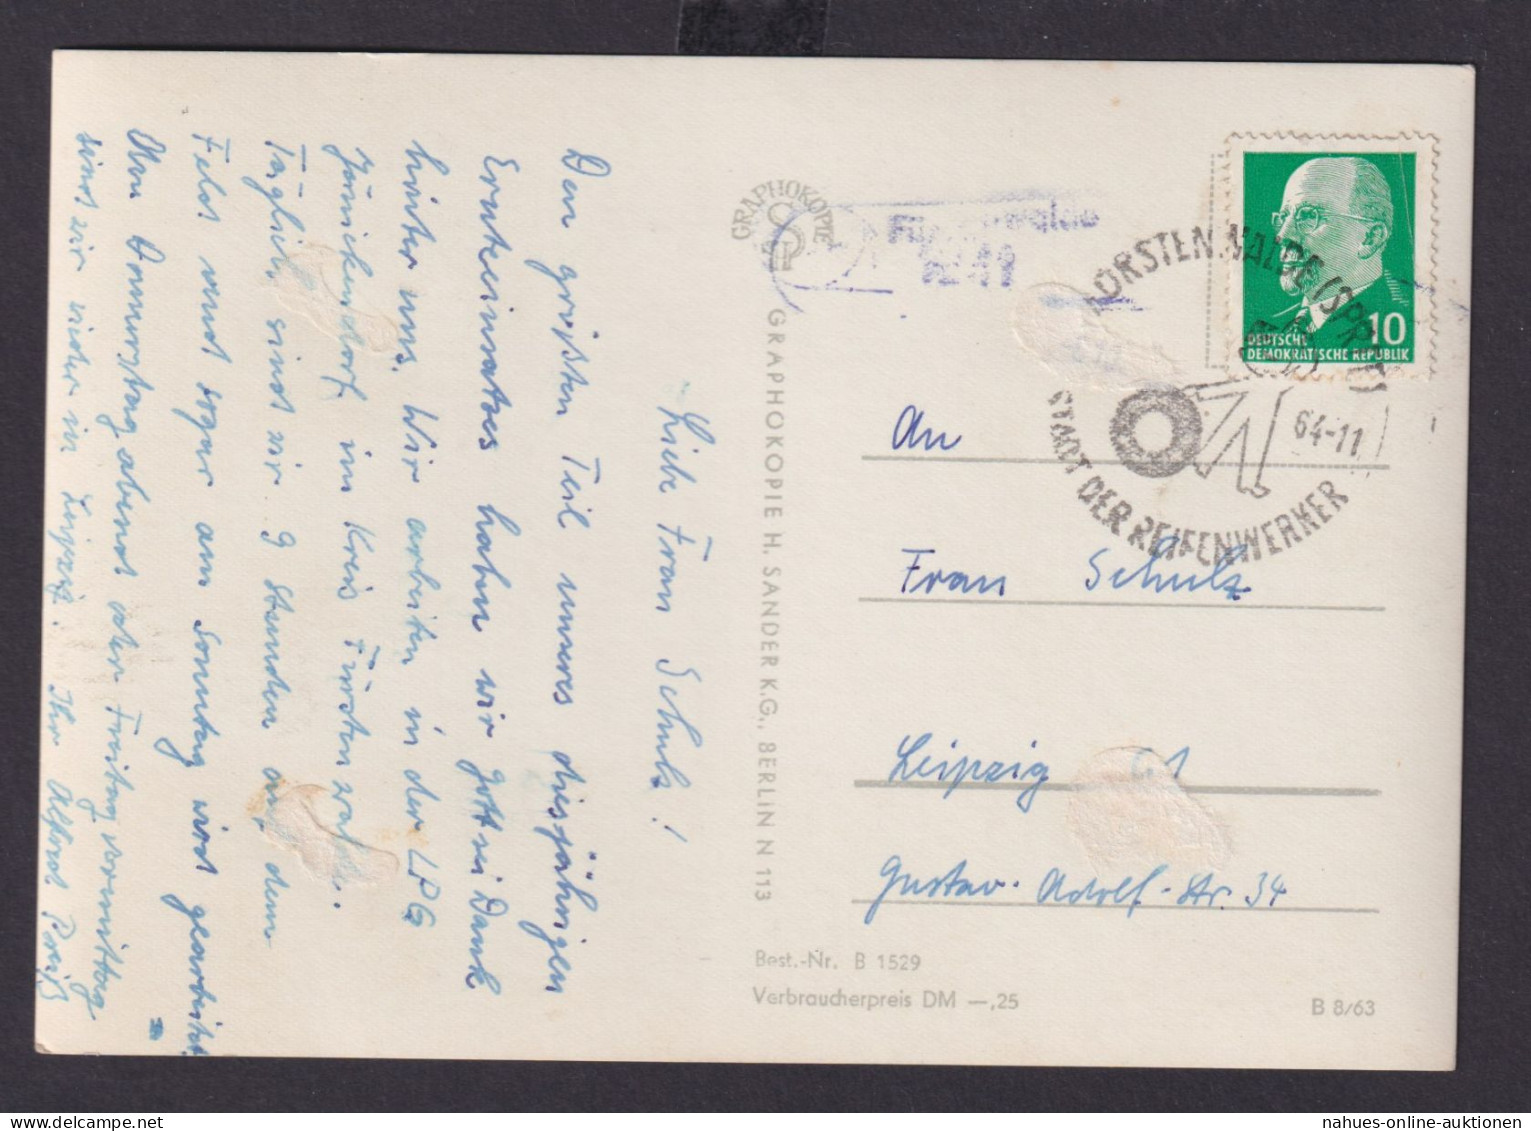 Liebe Frau Schulz!
Den größten Teil unseres diesjährigen
Ernteeinsatzes haben wir gottseiDank
hinter uns. Wir arbeiten in der LPG
Jänickendorf im Kreis Fürstenwalde.
Täglich sind wir 9 Stunden auf dem
Feld und sogar am Sonntag wird gearbeitet.
Am Donnerstag abend oder Freitag vormittag
sind wir wieder in Leipzig. Ihr Alfred Preiß
GRAPHOKOPIE
GRAPHOKOPIE H. SANDER K.G., BERLIN N 113
FÜRSTENWALDE (SPREE)
64-11
STADT DER REIFENWERKER
10
DEUTSCHE
DEMOKRATISCHE REPUBLIK
An
Frau Schulz
Leipzig C1
Gustav-Adolf-Str. 34
Best.-Nr. B 1529
Verbraucherpreis DM —,25
B 8/63
nahues-online-auktionen